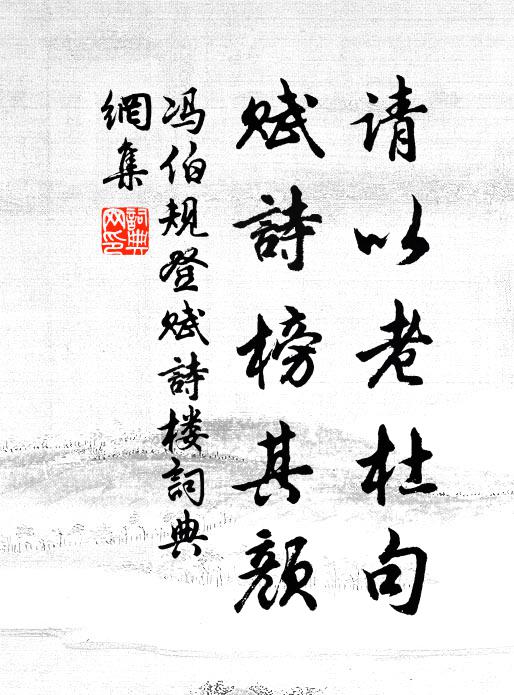 请以老杜句
赋詩榜其顏
冯伯规登赋詩楼詞典
網集
詞典
网印